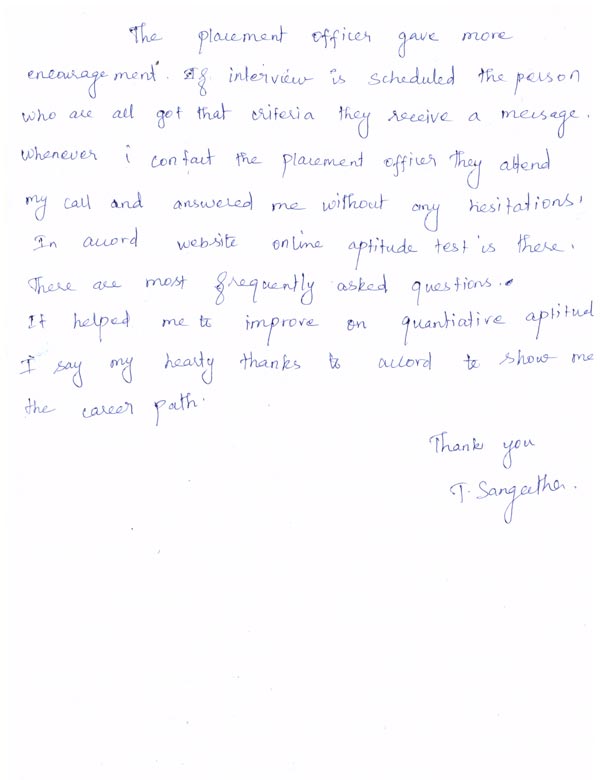 The placement officer gave more
encouragement. If interview is scheduled the person
who are all got that criteria they receive a message.
Whenever i contact the placement officer they attend
my call and answered me without any hesitations.
In accord website online aptitude test is there.
There are most frequently asked questions.
It helped me to improve on quantiative aptitud
I say my hearty thanks to accord to show me
the career path.
Thank you
T. Sangeetha.